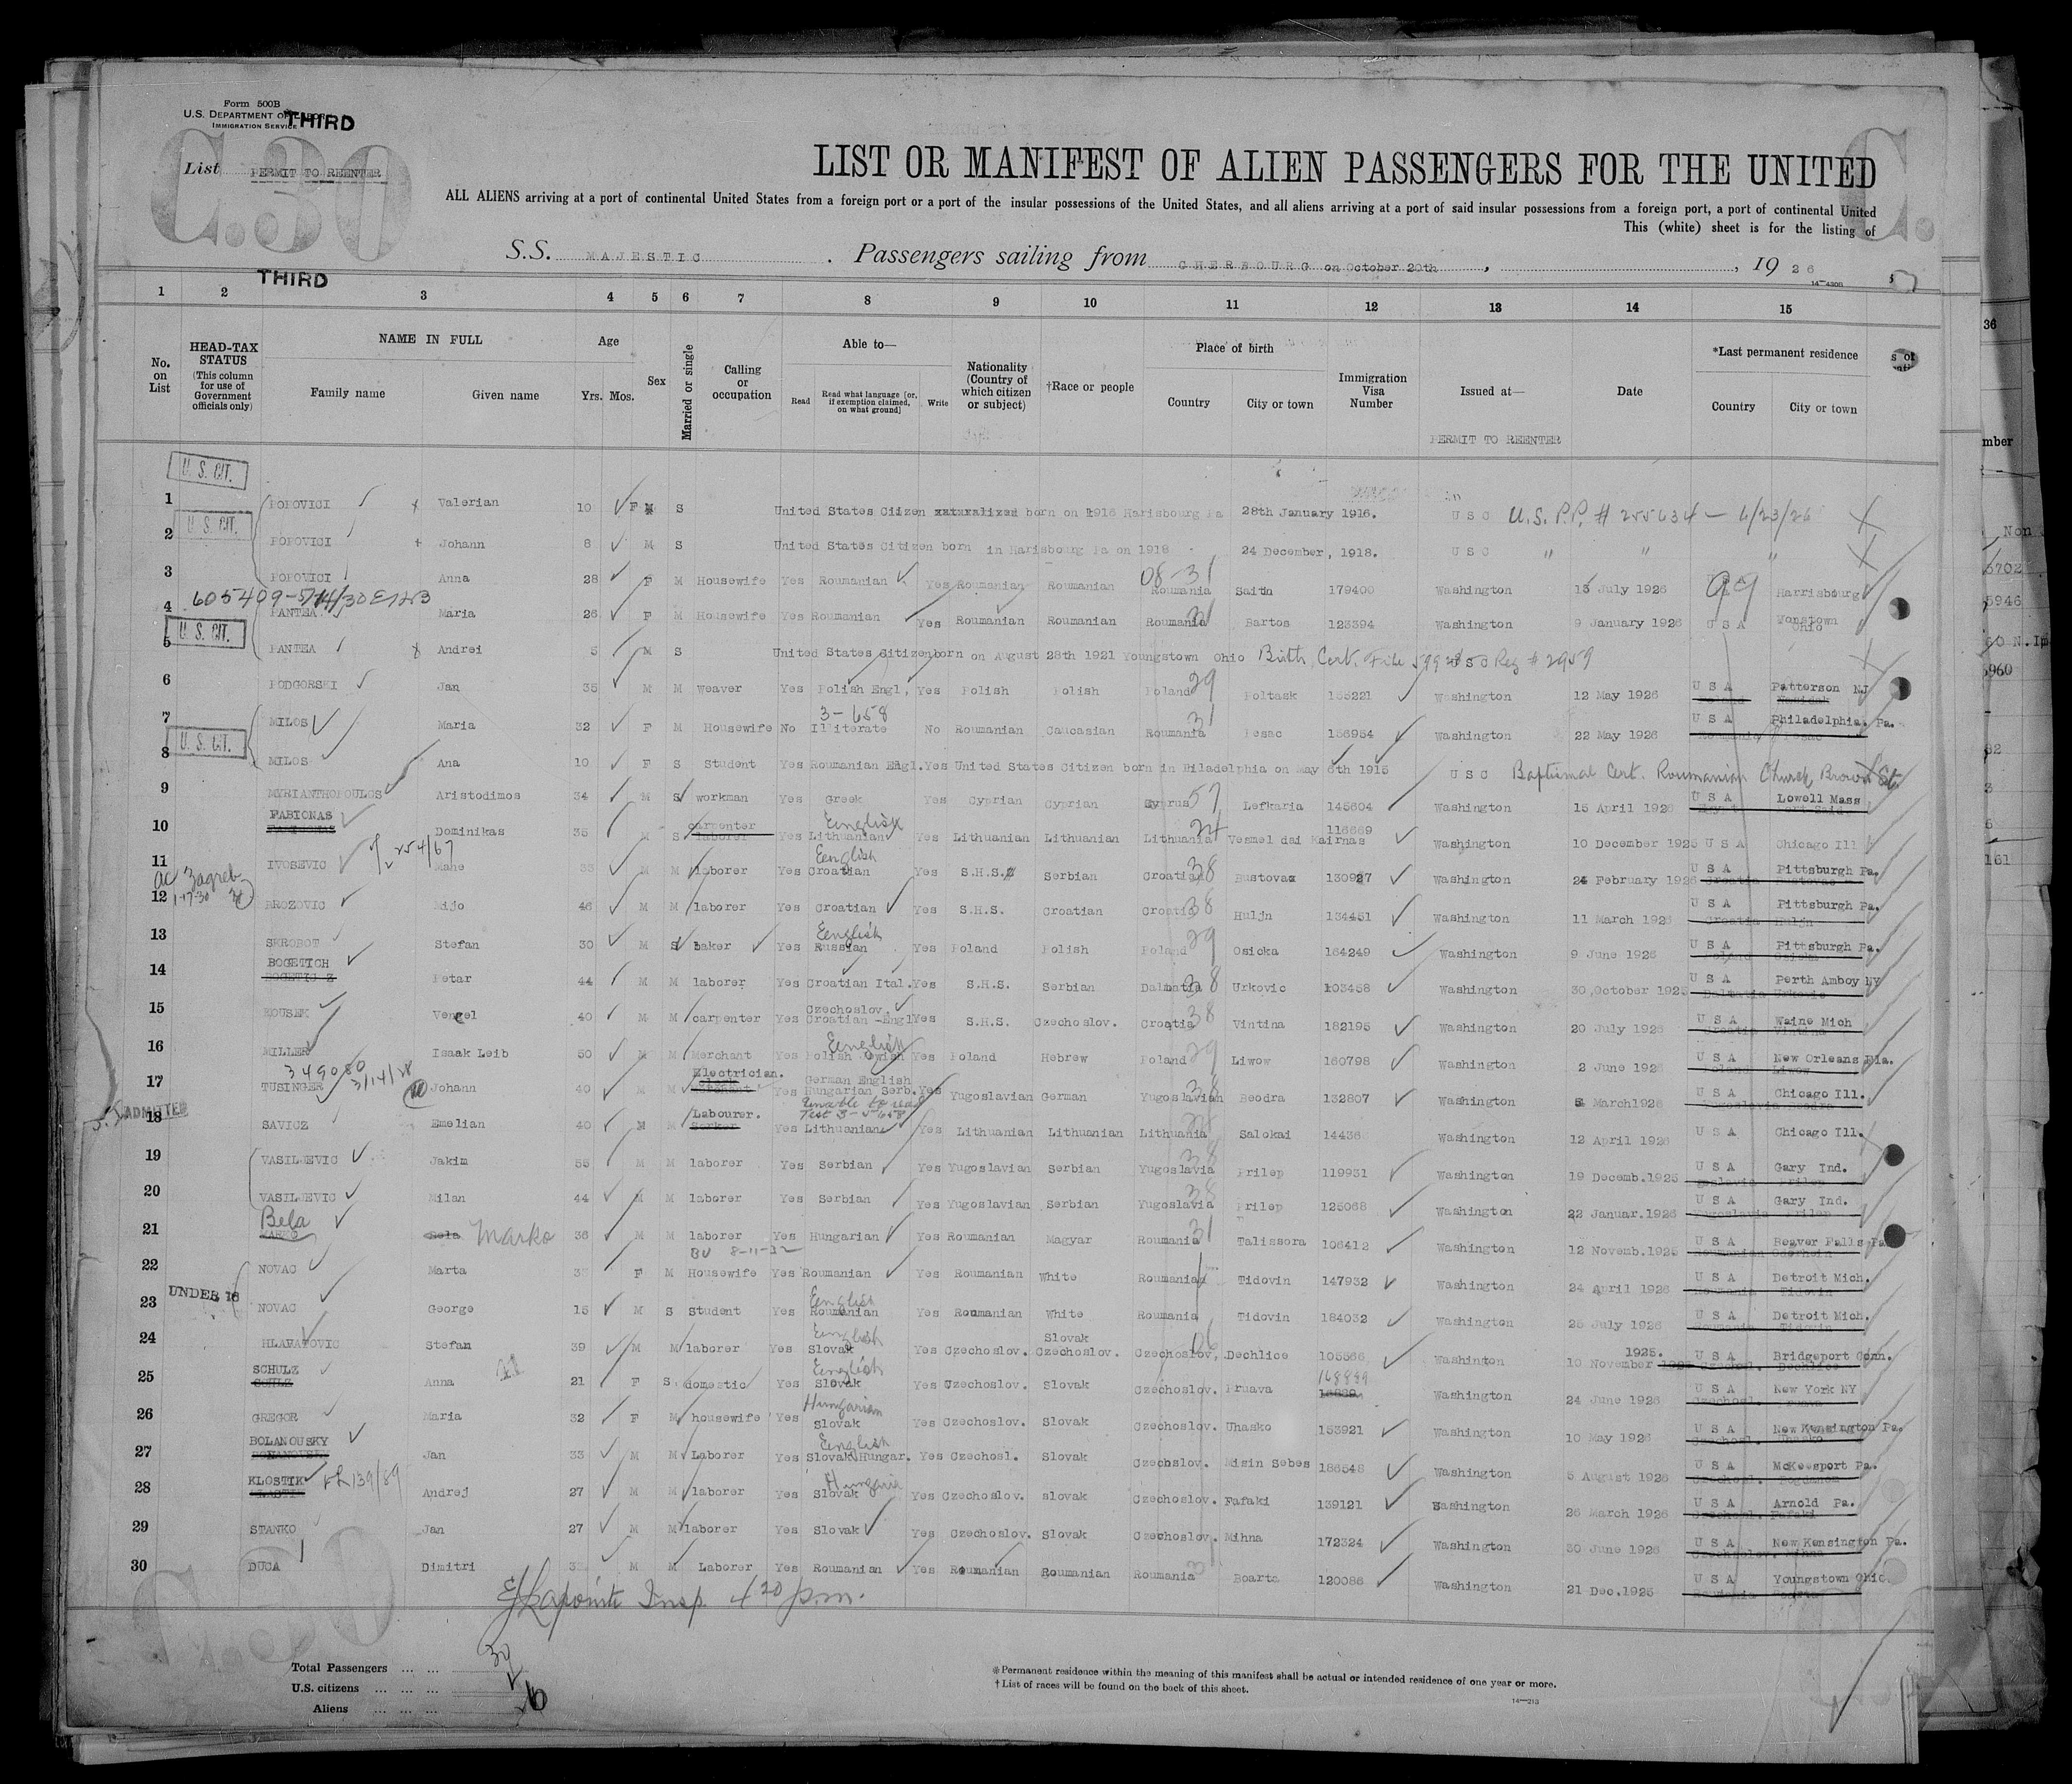 Form 500B
U.S. DEPARTMENT OF LABOR
IMMIGRATION SERVICE
THIRD
C.30
C.
List PERMIT TO REENTER
LIST OR MANIFEST OF ALIEN PASSENGERS FOR THE UNITED
ALL ALIENS arriving at a port of continental United States from a foreign port or a port of the insular possessions of the United States, and all aliens arriving at a port of said insular possessions from a foreign port, a port of continental United
This (white) sheet is for the listing of
S.S. MAJESTIC. Passengers sailing from CHERBOURG on October 20th, , 1926
14—430B
THIRD
1 2 3 4 5 6 7 8 9 10 11 12 13 14 15
No. on List
HEAD-TAX STATUS (This column for use of Government officials only)
NAME IN FULL Family name Given name
Age Yrs. Mos.
Sex
Married or single
Calling or occupation
Able to— Read Read what language [or, if exemption claimed, on what ground] Write
Nationality (Country of which citizen or subject)
†Race or people
Place of birth Country City or town
Immigration Visa Number
Issued at—
Date
*Last permanent residence Country City or town
PERMIT TO REENTER
U. S. CIT.
1 POPOVICI Valerian 10 F S United States Citizen naturalized born on 1916 Harisbourg Pa 28th January 1916. U S C U.S. P.P. # 255634 — 6/23/26
U. S. CIT.
2 POPOVICI Johann 8 M S United States Citizen born in Harisbourg Pa on 1918 24 December, 1918. U S C " " "
3 POPOVICI Anna 28 F M Housewife Yes Roumanian Yes Roumanian Roumanian 08-31 Roumania Saitn 179400 Washington 15 July 1926 99 Harrisbourg
4 PANTEA Maria 26 F M Housewife Yes Roumanian Yes Roumanian Roumanian Roumania 31 Sartos 123394 Washington 9 January 1926 U S A Yonstown Ohio
U. S. CIT.
5 PANTEA Andrei 5 M S United States Citizenborn on August 28th 1921 Youngstown Ohio Birth Cert. File 599 U S C Reg # 2959
6 PODGORSKI Jan 35 M M weaver Yes Polish Engl, Yes Polish Polish Poland 29 Poltask 155221 Washington 12 May 1926 U S A Patterson NJ
3-658
7 MILOS Maria 32 F M Housewife No Illiterate No Roumanian Caucasian Roumania 31 Pesac 156954 Washington 22 May 1926 U S A Philadelphia. Pa.
U. S. CIT.
8 MILOS Ana 10 F S Student Yes Roumanian Engl. Yes United States Citizen born in Piladelphia on May 6th 1915 U S C Baptismal Cert. Roumanian Church, Brown St.
9 MYRIANTHOPOULOS Aristodimos 34 M S workman Yes Greek Yes Cyprian Cyprian Cyprus 57 Lefkaria 145604 Washington 15 April 1926 U S A Lowell Mass
10 FABIONAS Dominikas 35 M S carpenter laborer Yes English Lithuanian Yes Lithuanian Lithuanian Lithuania 24 Vesmel dai Kairnas 116669 Washington 10 December 1925 U S A Chicago Ill
254/67
11 IVOSEVIC Mane 33 M M laborer Yes English Croatian Yes S.H.S. Serbian Croatia 38 Bustovax 130927 Washington 24 February 1926 U S A Pittsburgh Pa.
Zagreb 1-17-30
12 BROZOVIC Mijo 46 M M laborer Yes Croatian Yes S.H.S. Croatian Croatia 38 Huljn 134451 Washington 11 March 1926 U S A Pittsburgh Pa.
13 SKROBOT Stefan 30 M S baker Yes English Russian Yes Poland Polish Poland 29 Osicka 164249 Washington 9 June 1926 U S A Pittsburgh Pa.
14 BOGETICH Petar 44 M M laborer Yes Croatian Ital. Yes S.H.S. Serbian Dalmatia 38 Urkovic 103458 Washington 30 October 1925 U S A Perth Amboy NY
15 ROUSEK Vencel 40 M M carpenter Yes Czechoslov. Croatian -Engl Yes S.H.S. Czechoslov. Croatia 38 Vintina 182195 Washington 20 July 1926 U S A Waine Mich
16 MILLER Isaak Leib 50 M M Merchant Yes English Polish Yes Poland Hebrew Poland 29 Liwow 160798 Washington 2 June 1926 U S A New Orleans
349080 3/14/28
17 TUSINGER Johann 40 M M Electrician. Yes German English Hungarian Serb. Yes Yugoslavian German Yugoslavian 38 Beodra 132807 Washington 5 March1926 U S A Chicago Ill.
Unable to read Test 3-5-658
ADMITTED
18 SAVICZ Emelian 40 M M Labourer. Yes Lithuanian Yes Lithuanian Lithuanian Lithuania Salokai 14436 Washington 12 April 1926 U S A Chicago Ill.
19 VASILJEVIC Jakim 55 M M laborer Yes Serbian Yes Yugoslavian Serbian Yugoslavia 38 Prilep 119931 Washington 19 Decemb.1925 U S A Gary Ind.
20 VASILJEVIC Milan 44 M M laborer Yes Serbian Yes Yugoslavian Serbian Yugoslavia 38 Prilep 125068 Washington 22 Januar.1926 U S A Gary Ind.
21 Bela MARKO Bela Marko 36 M M laborer Yes Hungarian Yes Roumanian Magyar Roumania 31 Talissora 106412 Washington 12 Novemb.1925 U S A Beaver Falls Pa
8-11-32
22 NOVAC Marta F M Housewife Yes Roumanian Yes Roumanian White Roumania Tidovin 147932 Washington 24 April 1926 U S A Detroit Mich.
UNDER 16
23 NOVAC George 15 M S Student Yes English Roumanian Yes Roumanian White Roumania Tidovin 184032 Washington 26 July 1926 U S A Detroit Mich.
24 HLAVATOVIC Stefan 39 M M laborer Yes English Slovak Yes Czechoslov. Slovak Czechoslov. Czechoslov, 06 Dechlice 105566 Washinton 10 November 1925. U S A Bridgeport Conn.
25 SCHULZ Anna 21 F S domestic Yes English Slovak Yes Czechoslov. Slovak Czechoslov. Pruava 168889 Washington 24 June 1926 U S A New York NY
26 GREGOR Maria 32 F M housewife Yes Hungarian Slovak Yes Czechoslov. Slovak Czechoslov. Uhasko 153921 Washington 10 May 1926 U S A New Kensington Pa.
27 BOLANOUSKY Jan 33 M M Laborer Yes English Slovak Hungar. Yes Czechosl. Slovak Czechslov. Nizin Sebes 186548 Washington 5 August 1926 U S A McKeesport Pa.
28 KLOSTIK 139/89 Andrej 27 M M laborer Yes Slovak Yes Czechoslov. slovak Czechoslov. Fafaki 139121 Washington 26 March 1926 U S A Arnold Pa.
29 STANKO Jan 27 M M laborer Yes Slovak Yes Czechoslov. Slovak Czechoslov. Mihna 172324 Washington 30 June 1926 U S A New Kensington Pa.
30 DUCA Dimitri M M Laborer Yes Roumanian Yes Roumanian Roumanian Roumania Boarta 120086 Washington 21 Dec.1925 U S A Youngstown Ohio.
Lapointe Insp. 4 20 p.m.
Total Passengers ... ... 30
U.S. citizens ... ... ...
Aliens ... ... ...
*Permanent residence within the meaning of this manifest shall be actual or intended residence of one year or more.
†List of races will be found on the back of this sheet.
14—213